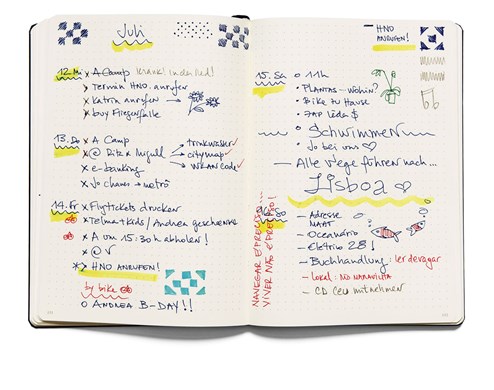 Juli
12. Mi x A Camp krank! in der Bed!
x Termin HNO. anrufen
x Katrin anrufen
x buy Fliegenfalle
13. Do x A Camp
x @ Rita x Migull → trinkwasser
→ citymap
→ WKAN CODE
x e-banking
x Jo chams → metrô
14. Fr x Flytickets drucken
x Telma + kids / Andrea geschenke
x A um 15:30h abholen!
x @ V
x2 HNO ANRUFEN!
by bike
o ANDREA B-DAY!!
HNO
ANRUFEN!
15. Sa o 11h
o PLANTAS - wohin?
o Bike to House
o ZAP Lêda $
o Schwimmen
o Jo bei uns
— Alle Wege führen nach...
Lisboa
NAVEGAR É PRECISO...
VIVER NÃO É PRECISO!
So
– ADRESSE
NAHT
– Oceanário
– Elétrico 28!
– Buchhandlung: ler devagar
– Lokal: NO MARAVILHA
– CD CEU mitnehmen